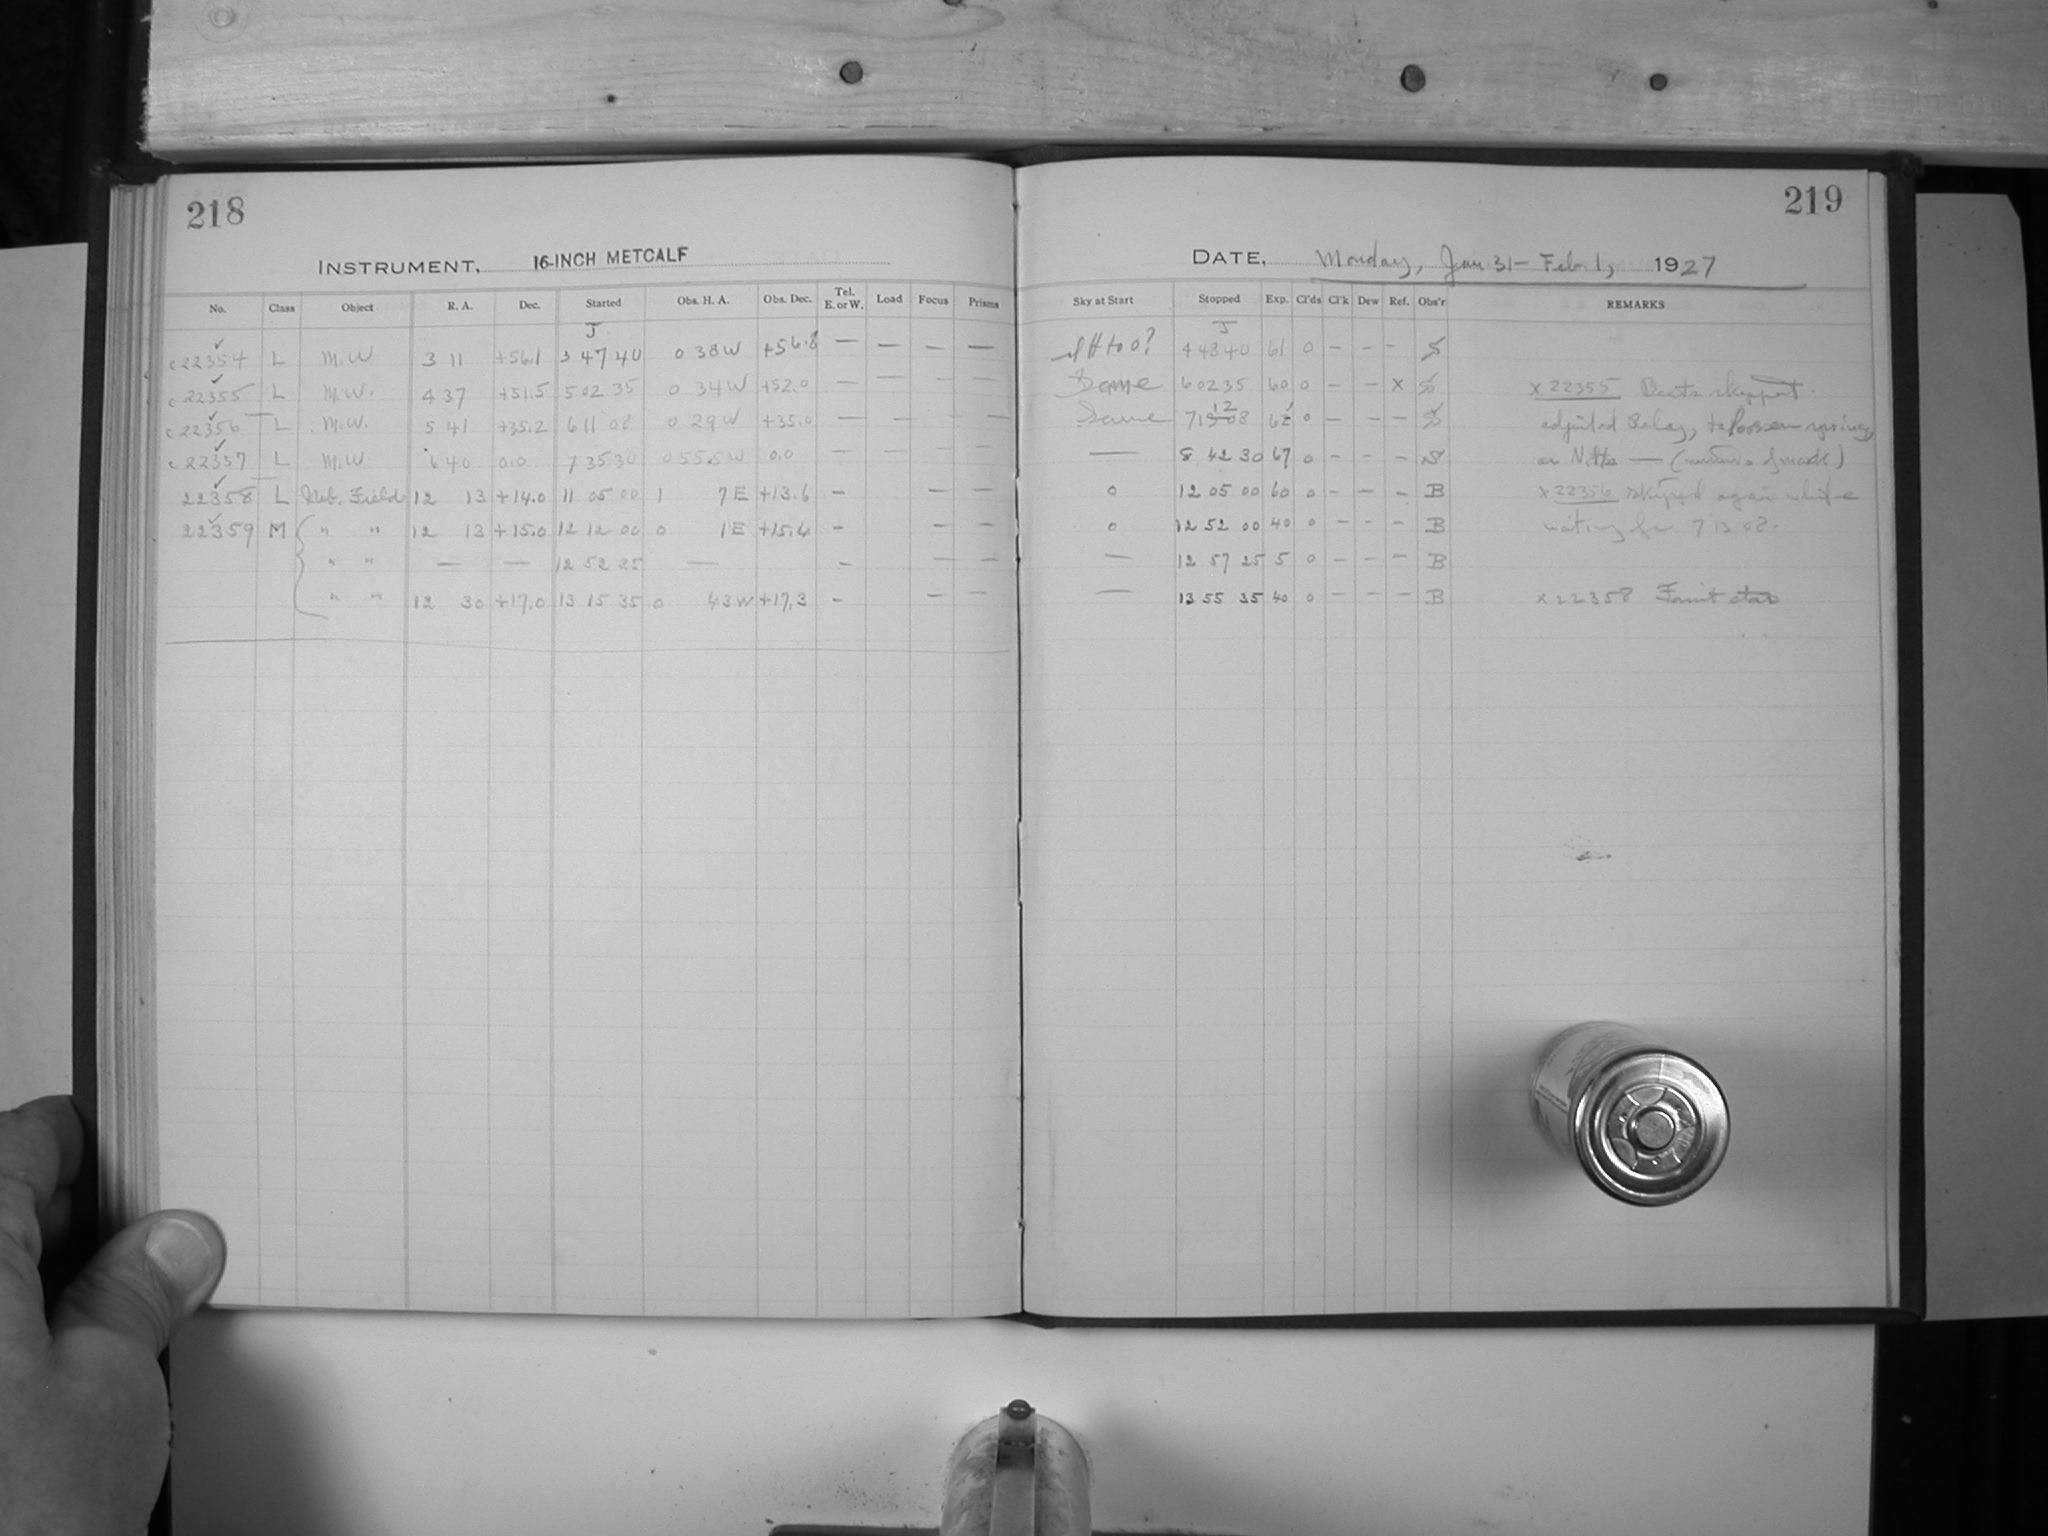 218
INSTRUMENT, 16-INCH METCALF
No. Class Object R. A. Dec. Started Obs. H. A. Obs. Dec. Tel. E. or W. Load Focus Prisms
J
c22354 L M.W 3 11 +56.1 3 47 40 0 38W +56.8 — — — —
c22355 L M.W. 4 37 +51.5 5 02 35 0 34W +52.0 — — — —
c22356 L M.W. 5 41 +35.2 6 11 08 0 29W +35.0 — — — —
c22357 L M.W 6 40 0.0 7 35 30 0 55.5W 0.0 — — — —
22358 L Neb. Field 12 13 +14.0 11 05 00 1 7E +13.6 — — —
22359 M " " 12 13 +15.0 12 12 00 0 1E +15.4 — — —
" " — — 12 52 25 — — — —
" " 12 30 +17.0 13 15 35 0 43W +17.3 — — —
219
DATE, Monday, Jan 31 - Feb. 1, 1927
Sky at Start Stopped Exp. Cl'ds Cl'k Dew Ref. Obs'r REMARKS
J
to 0? 4 48 40 61 0 — — —
Same 6 02 35 60 0 — — x x 22355 Beats skipped.
Same 7 13 08 12 62 0 — — — adjusted Relay, to loosen spring,
— 8 42 30 67 0 — — —
0 12 05 00 60 0 — — — B x 22356 skipped again while
0 12 52 00 40 0 — — — B waiting for 7 13 08.
— 12 57 25 5 0 — — — B
— 13 55 35 40 0 — — — B x 22358 Faint star